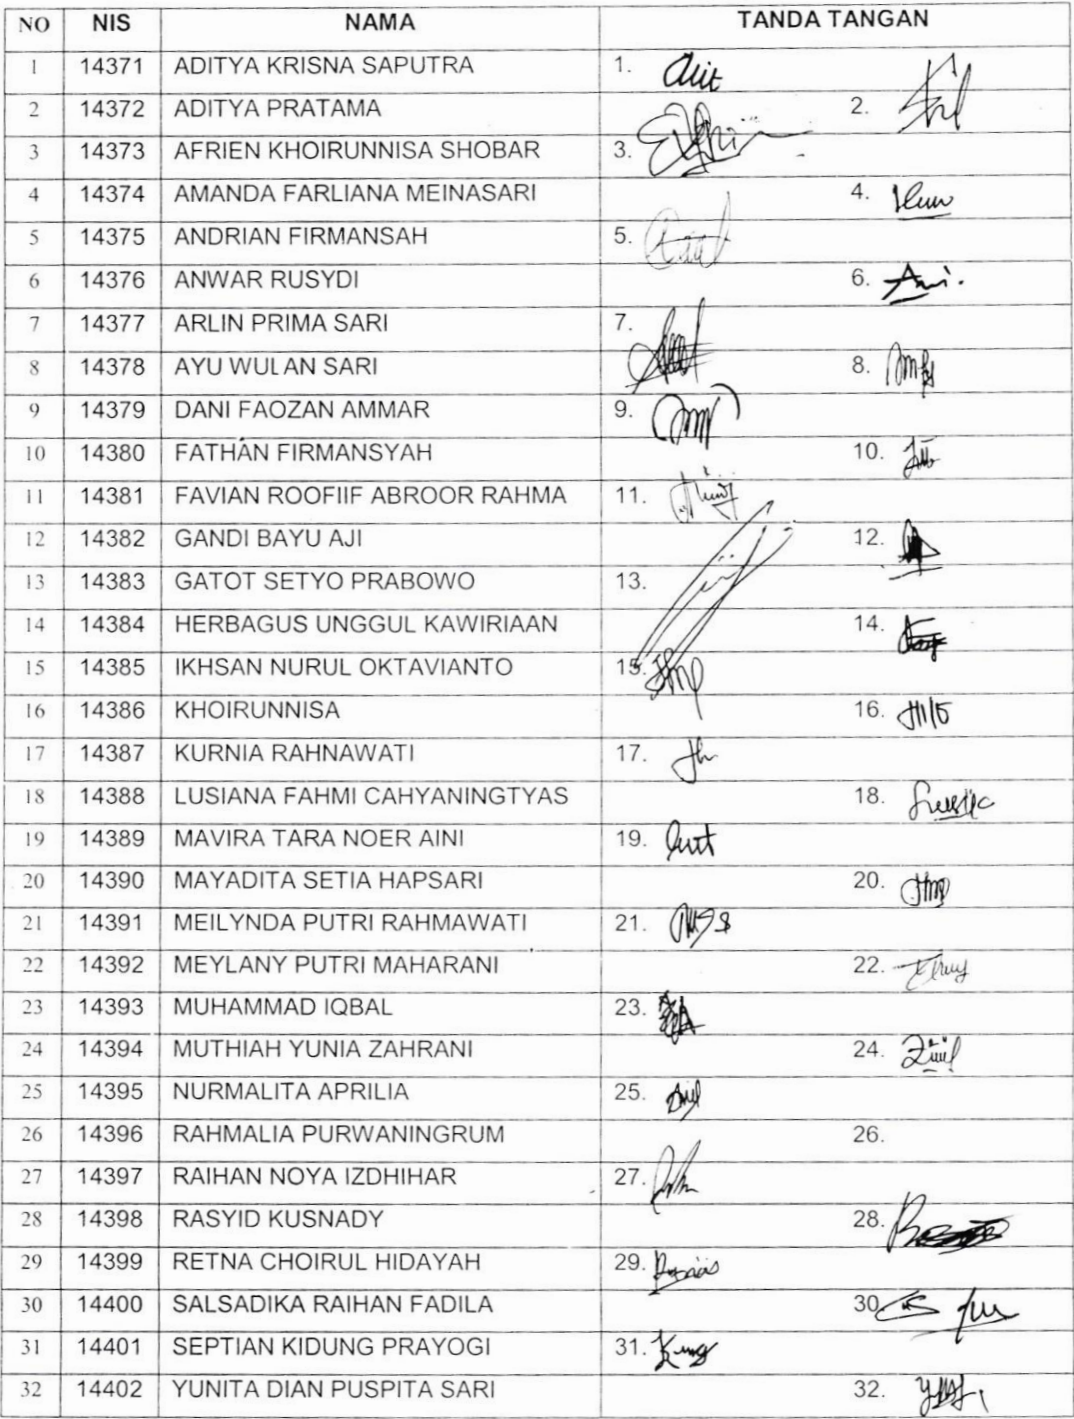 NO NIS NAMA TANDA TANGAN
1 14371 ADITYA KRISNA SAPUTRA 1.
2 14372 ADITYA PRATAMA 2.
3 14373 AFRIEN KHOIRUNNISA SHOBAR 3.
4 14374 AMANDA FARLIANA MEINASARI 4.
5 14375 ANDRIAN FIRMANSAH 5.
6 14376 ANWAR RUSYDI 6.
7 14377 ARLIN PRIMA SARI 7.
8 14378 AYU WULAN SARI 8.
9 14379 DANI FAOZAN AMMAR 9.
10 14380 FATHAN FIRMANSYAH 10.
11 14381 FAVIAN ROOFIIF ABROOR RAHMA 11.
12 14382 GANDI BAYU AJI 12.
13 14383 GATOT SETYO PRABOWO 13.
14 14384 HERBAGUS UNGGUL KAWIRIAAN 14.
15 14385 IKHSAN NURUL OKTAVIANTO 15.
16 14386 KHOIRUNNISA 16.
17 14387 KURNIA RAHNAWATI 17.
18 14388 LUSIANA FAHMI CAHYANINGTYAS 18.
19 14389 MAVIRA TARA NOER AINI 19.
20 14390 MAYADITA SETIA HAPSARI 20.
21 14391 MEILYNDA PUTRI RAHMAWATI 21.
22 14392 MEYLANY PUTRI MAHARANI 22.
23 14393 MUHAMMAD IQBAL 23.
24 14394 MUTHIAH YUNIA ZAHRANI 24.
25 14395 NURMALITA APRILIA 25.
26 14396 RAHMALIA PURWANINGRUM 26.
27 14397 RAIHAN NOYA IZDHIHAR 27.
28 14398 RASYID KUSNADY 28.
29 14399 RETNA CHOIRUL HIDAYAH 29.
30 14400 SALSADIKA RAIHAN FADILA 30
31 14401 SEPTIAN KIDUNG PRAYOGI 31.
32 14402 YUNITA DIAN PUSPITA SARI 32.